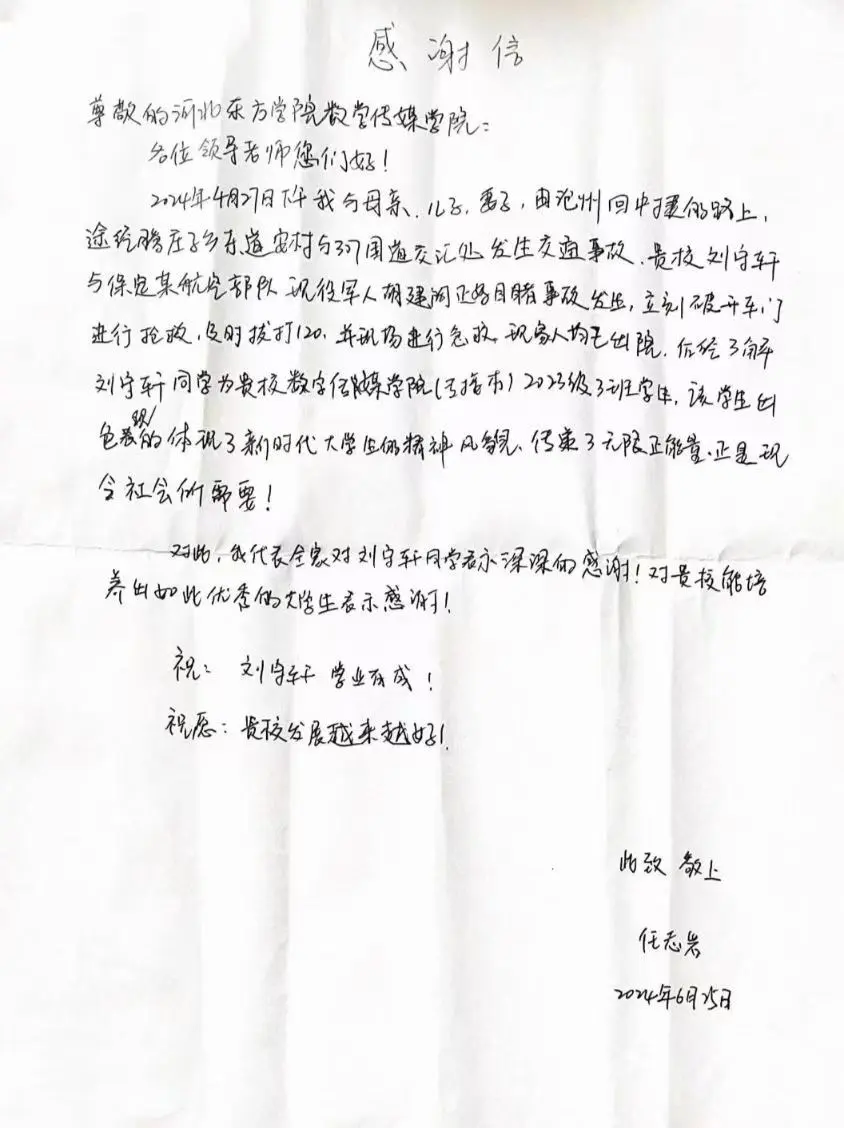 感谢信
尊敬的河北东方学院数字传媒学院：
各位领导老师您们好！
2024年4月27日下午我与母亲、儿子、妻子，由沧州回中捷的路上，
途经腾庄子乡东道安村与337国道交汇处发生交通事故、贵校刘守轩
与保定某航空部队现役军人胡建阔正好目睹事故发生，立刻破开车门
进行抢救，及时拔打120，并现场进行急救，现家人均已出院。后经了解
刘守轩同学为贵校数字传媒学院(专接本)2023级3班学生，该学生出
色表现的体现了新时代大学生的精神风貌、传束了无限正能量，正是现
今社会所需要！
对此，我代表全家对刘守轩同学表示深深的感谢！对贵校能培
养出如此优秀的大学生表示感谢！
祝：刘守轩 学业有成！
祝愿：贵校发展越来越好！
此致 敬上
任志岩
2024年6月25日